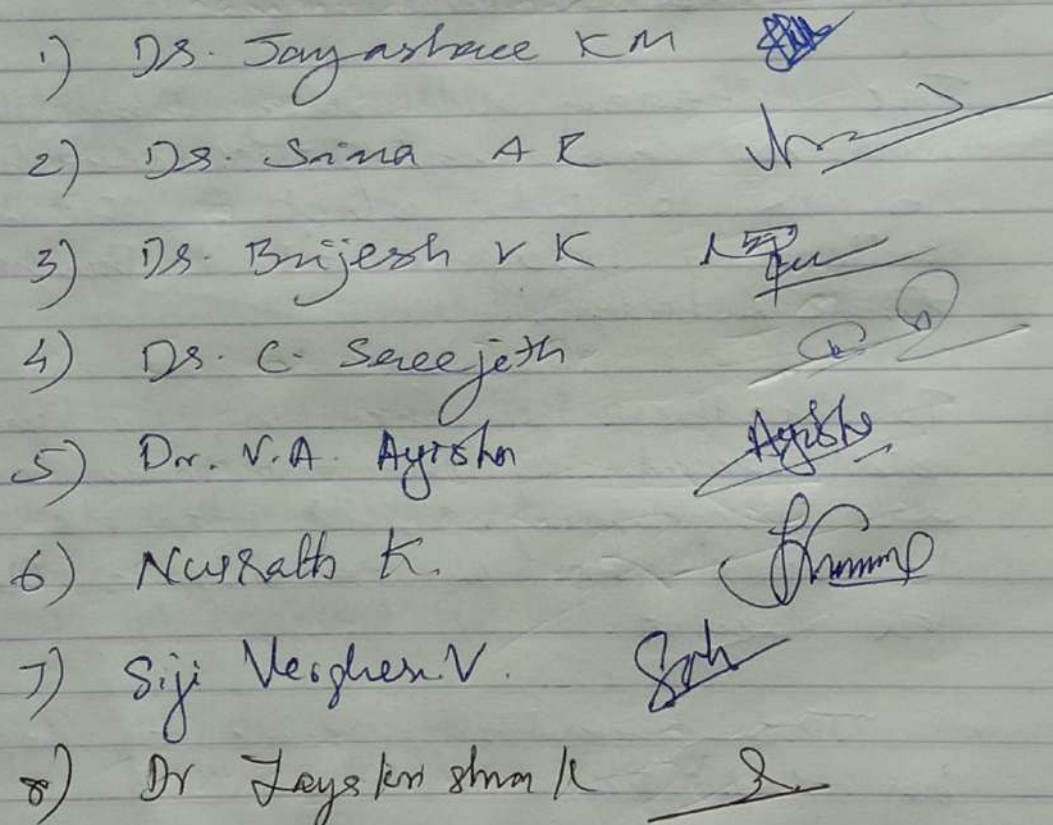 1) Dr. Jayashree KM
2) Dr. Srina A R
3) Dr. Brijesh V K
4) Dr. C. Sreejeth
5) Dr. V.A. Ayisha
6) Nusrath K.
7) Siji Verghese.V.
8) Dr Jayakrishna K